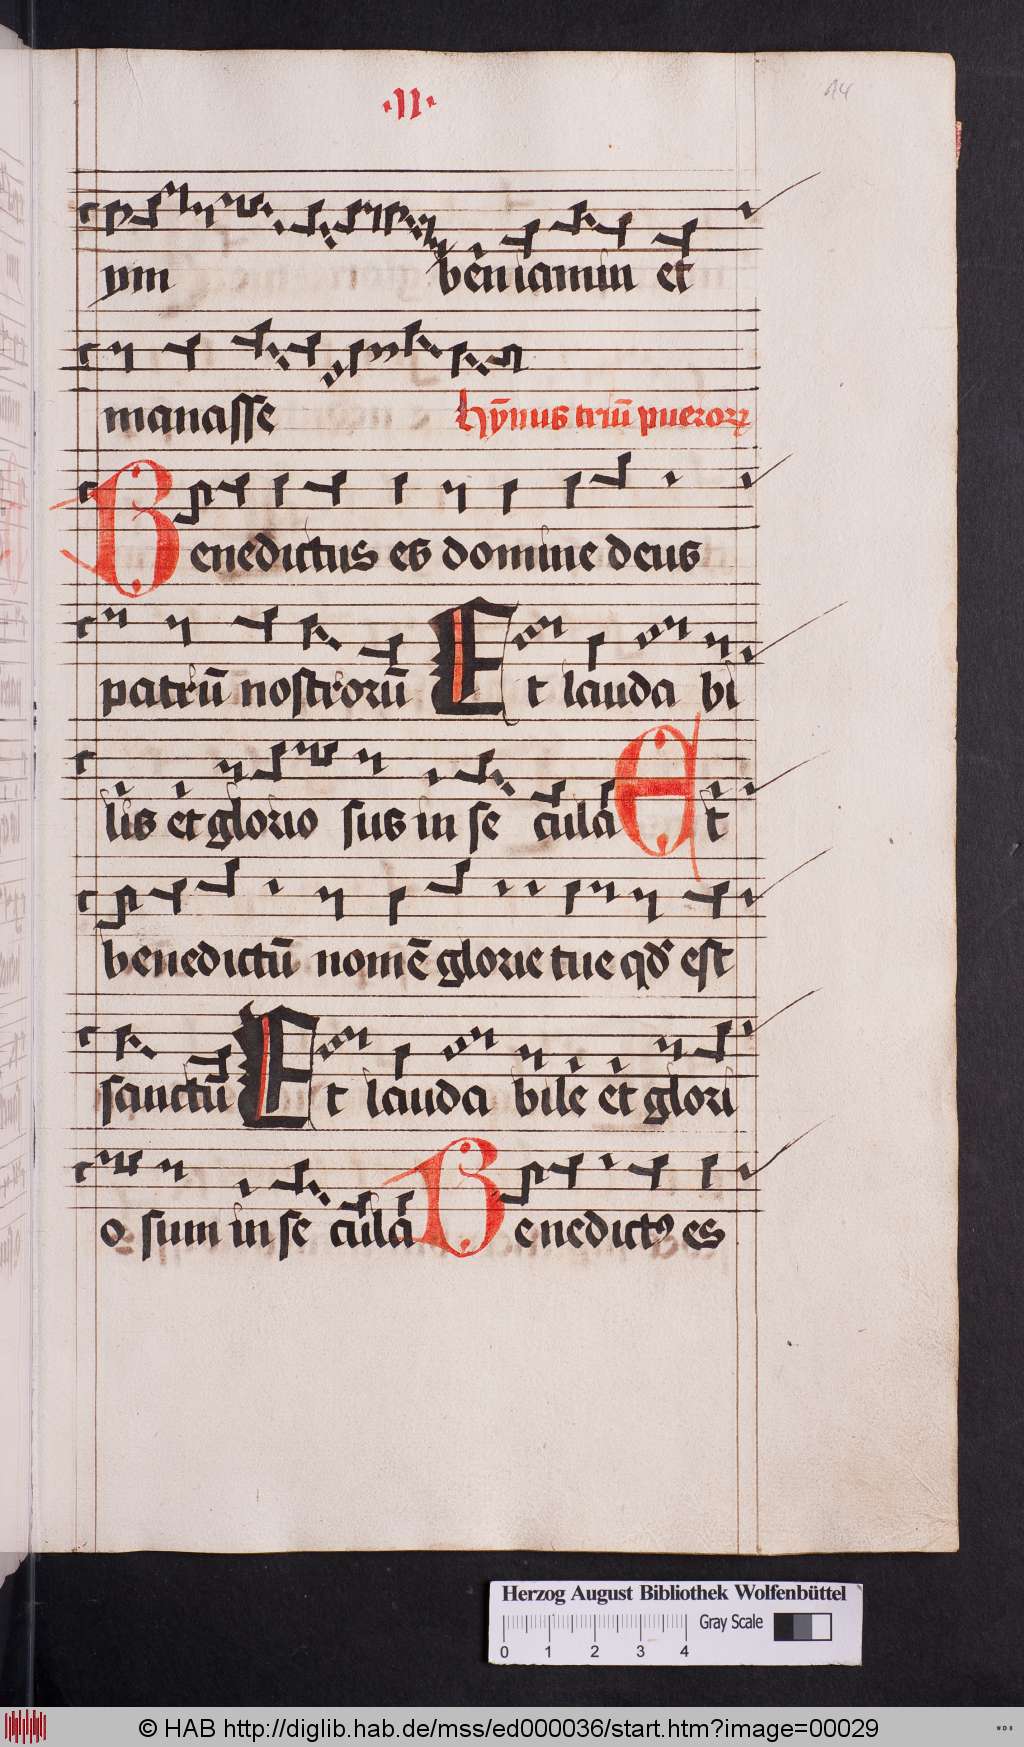 ·II·
14
ym beniamin et
manasse hȳnus triū pueroꝝ
Benedictus es domine deus
patrū nostrorū Et lauda bi
lis et glorio sus in se cula Et
benedictū nomē glorie tue qd̄ est
sanctū Et lauda bile et glori
o sum in se cula Benedictꝰ es
Herzog August Bibliothek Wolfenbüttel
Gray Scale
0 1 2 3 4
© HAB http://diglib.hab.de/mss/ed000036/start.htm?image=00029